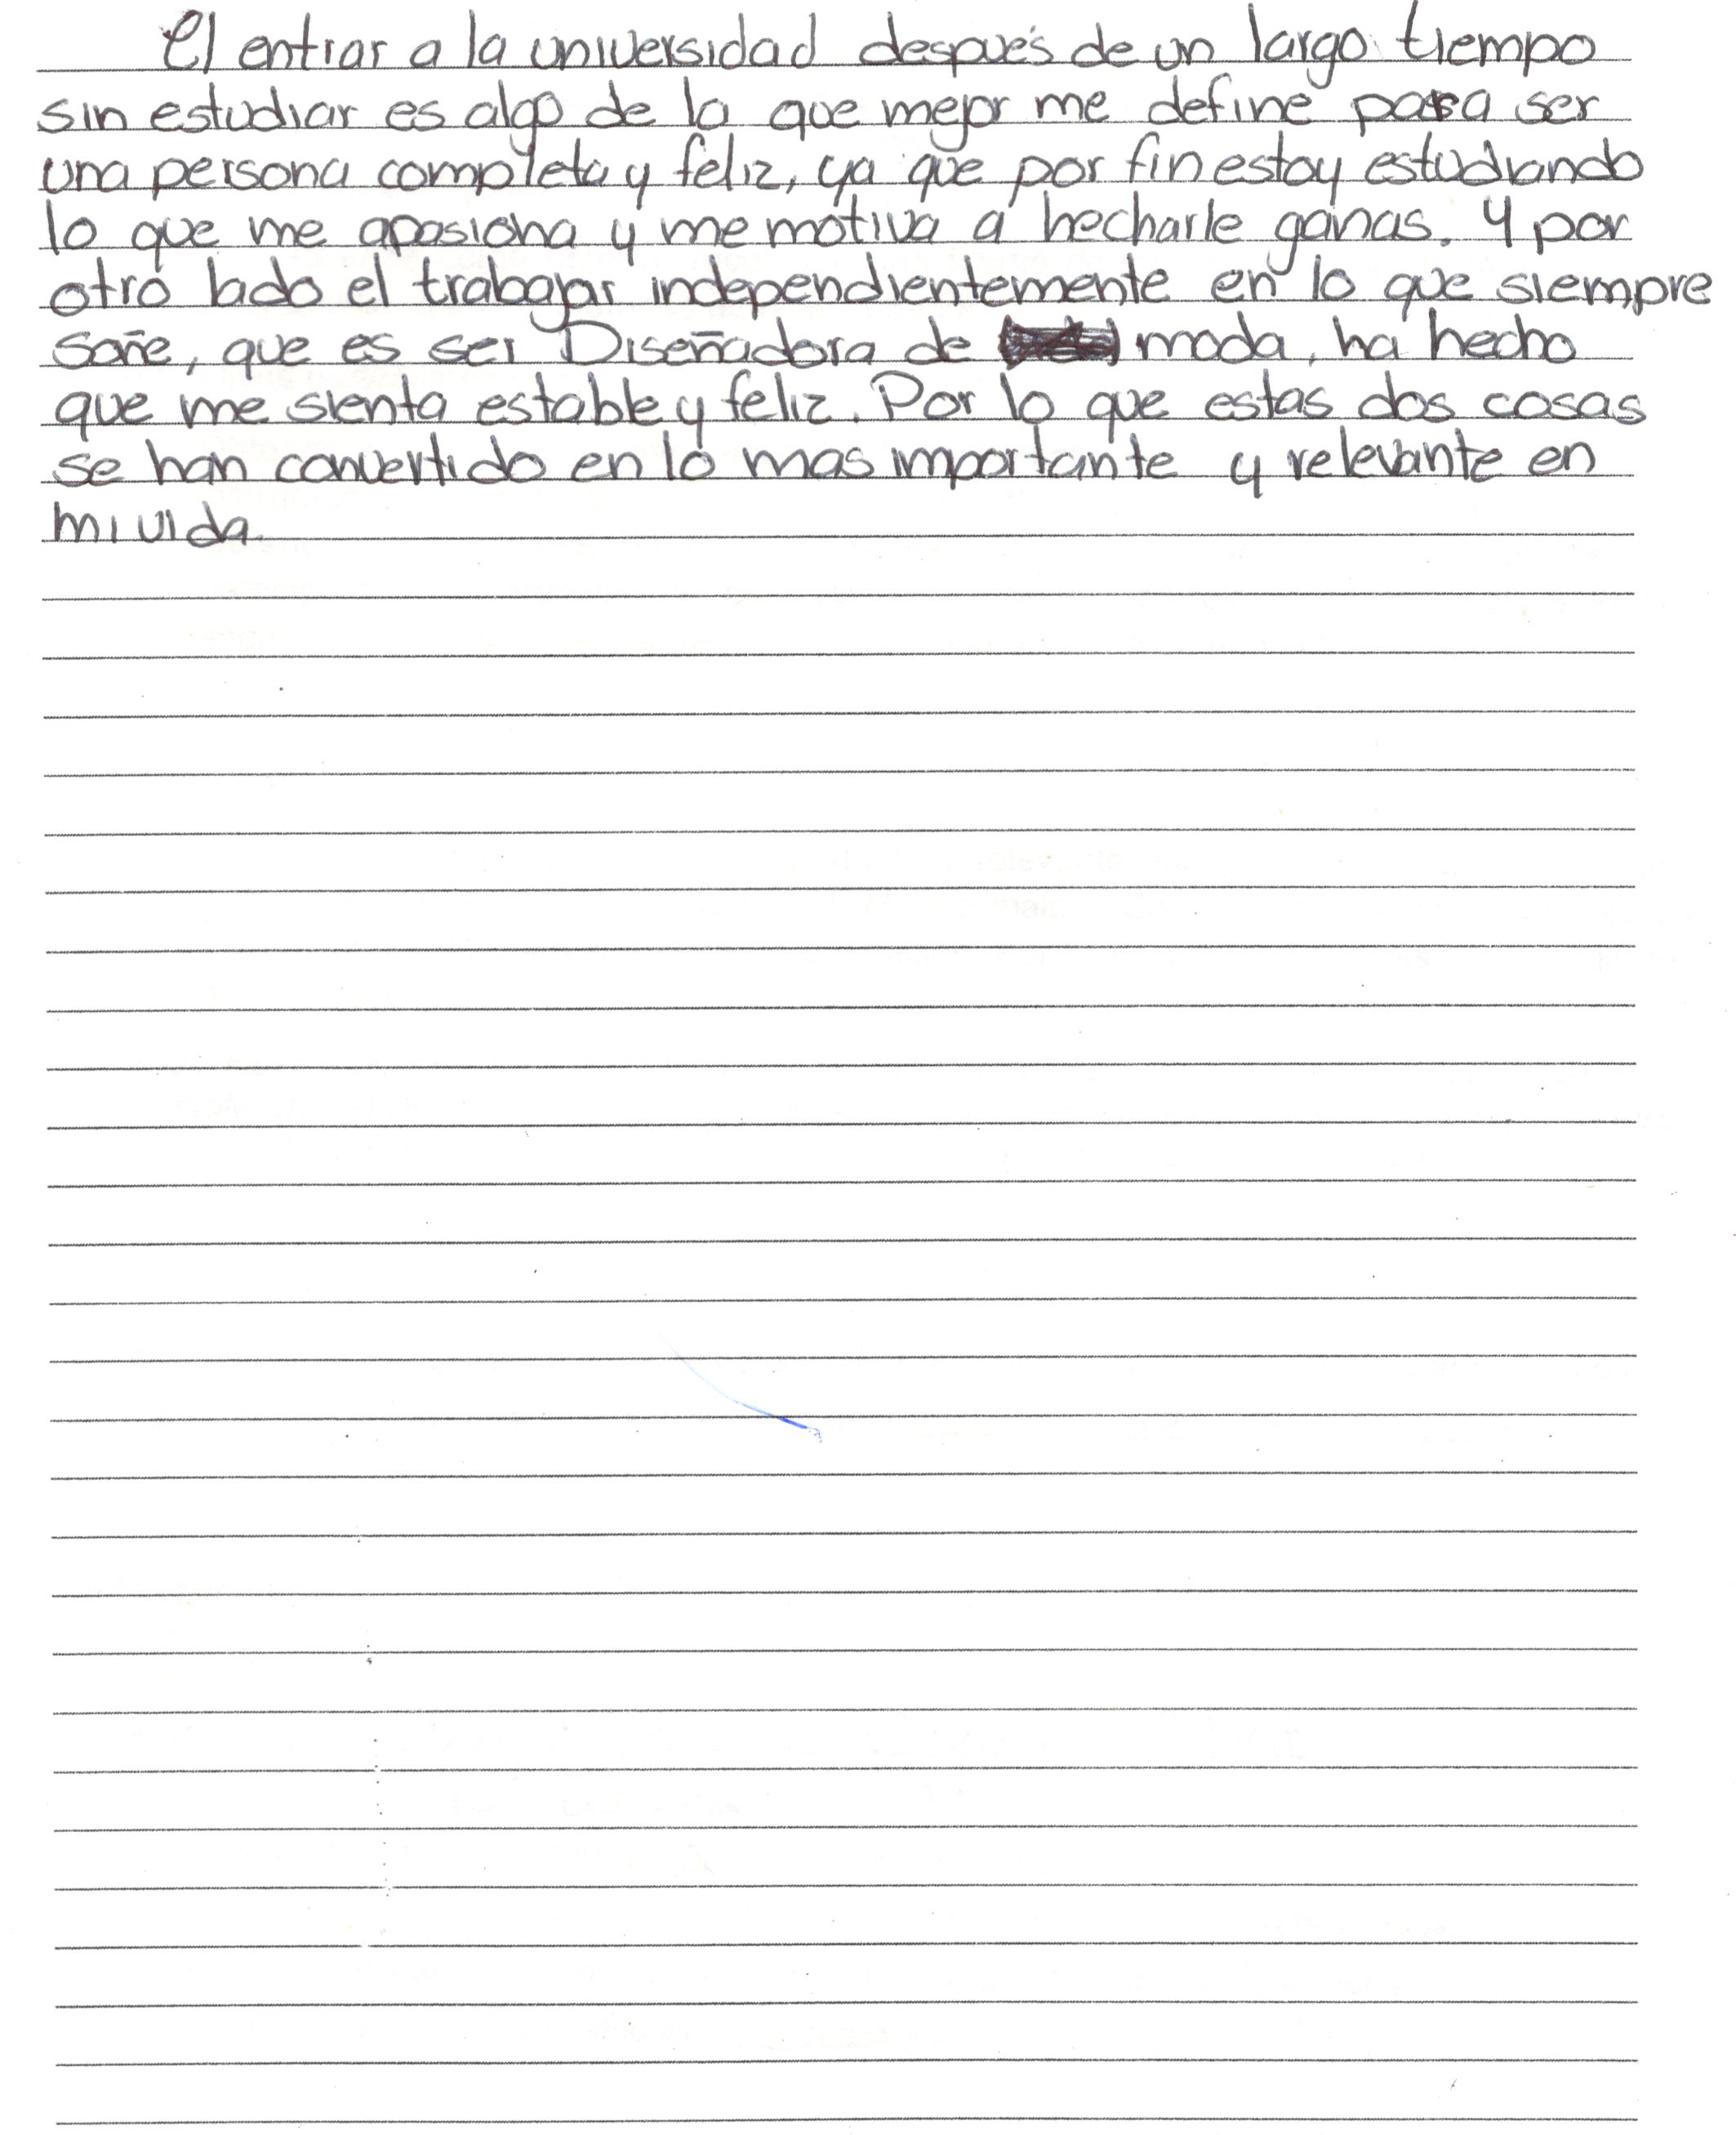 El entrar a la universidad después de un largo tiempo
sin estudiar es algo de lo que mejor me define para ser
una persona completa y feliz, ya que por fin estoy estudiando
lo que me apasiona y me motiva a hecharle ganas. Y por
otro lado el trabajar independientemente en lo que siempre
soñe, que es ser Diseñadora de moda, ha hecho
que me sienta estable y feliz. Por lo que estas dos cosas
se han convertido en lo mas importante y relevante en
mi vida.